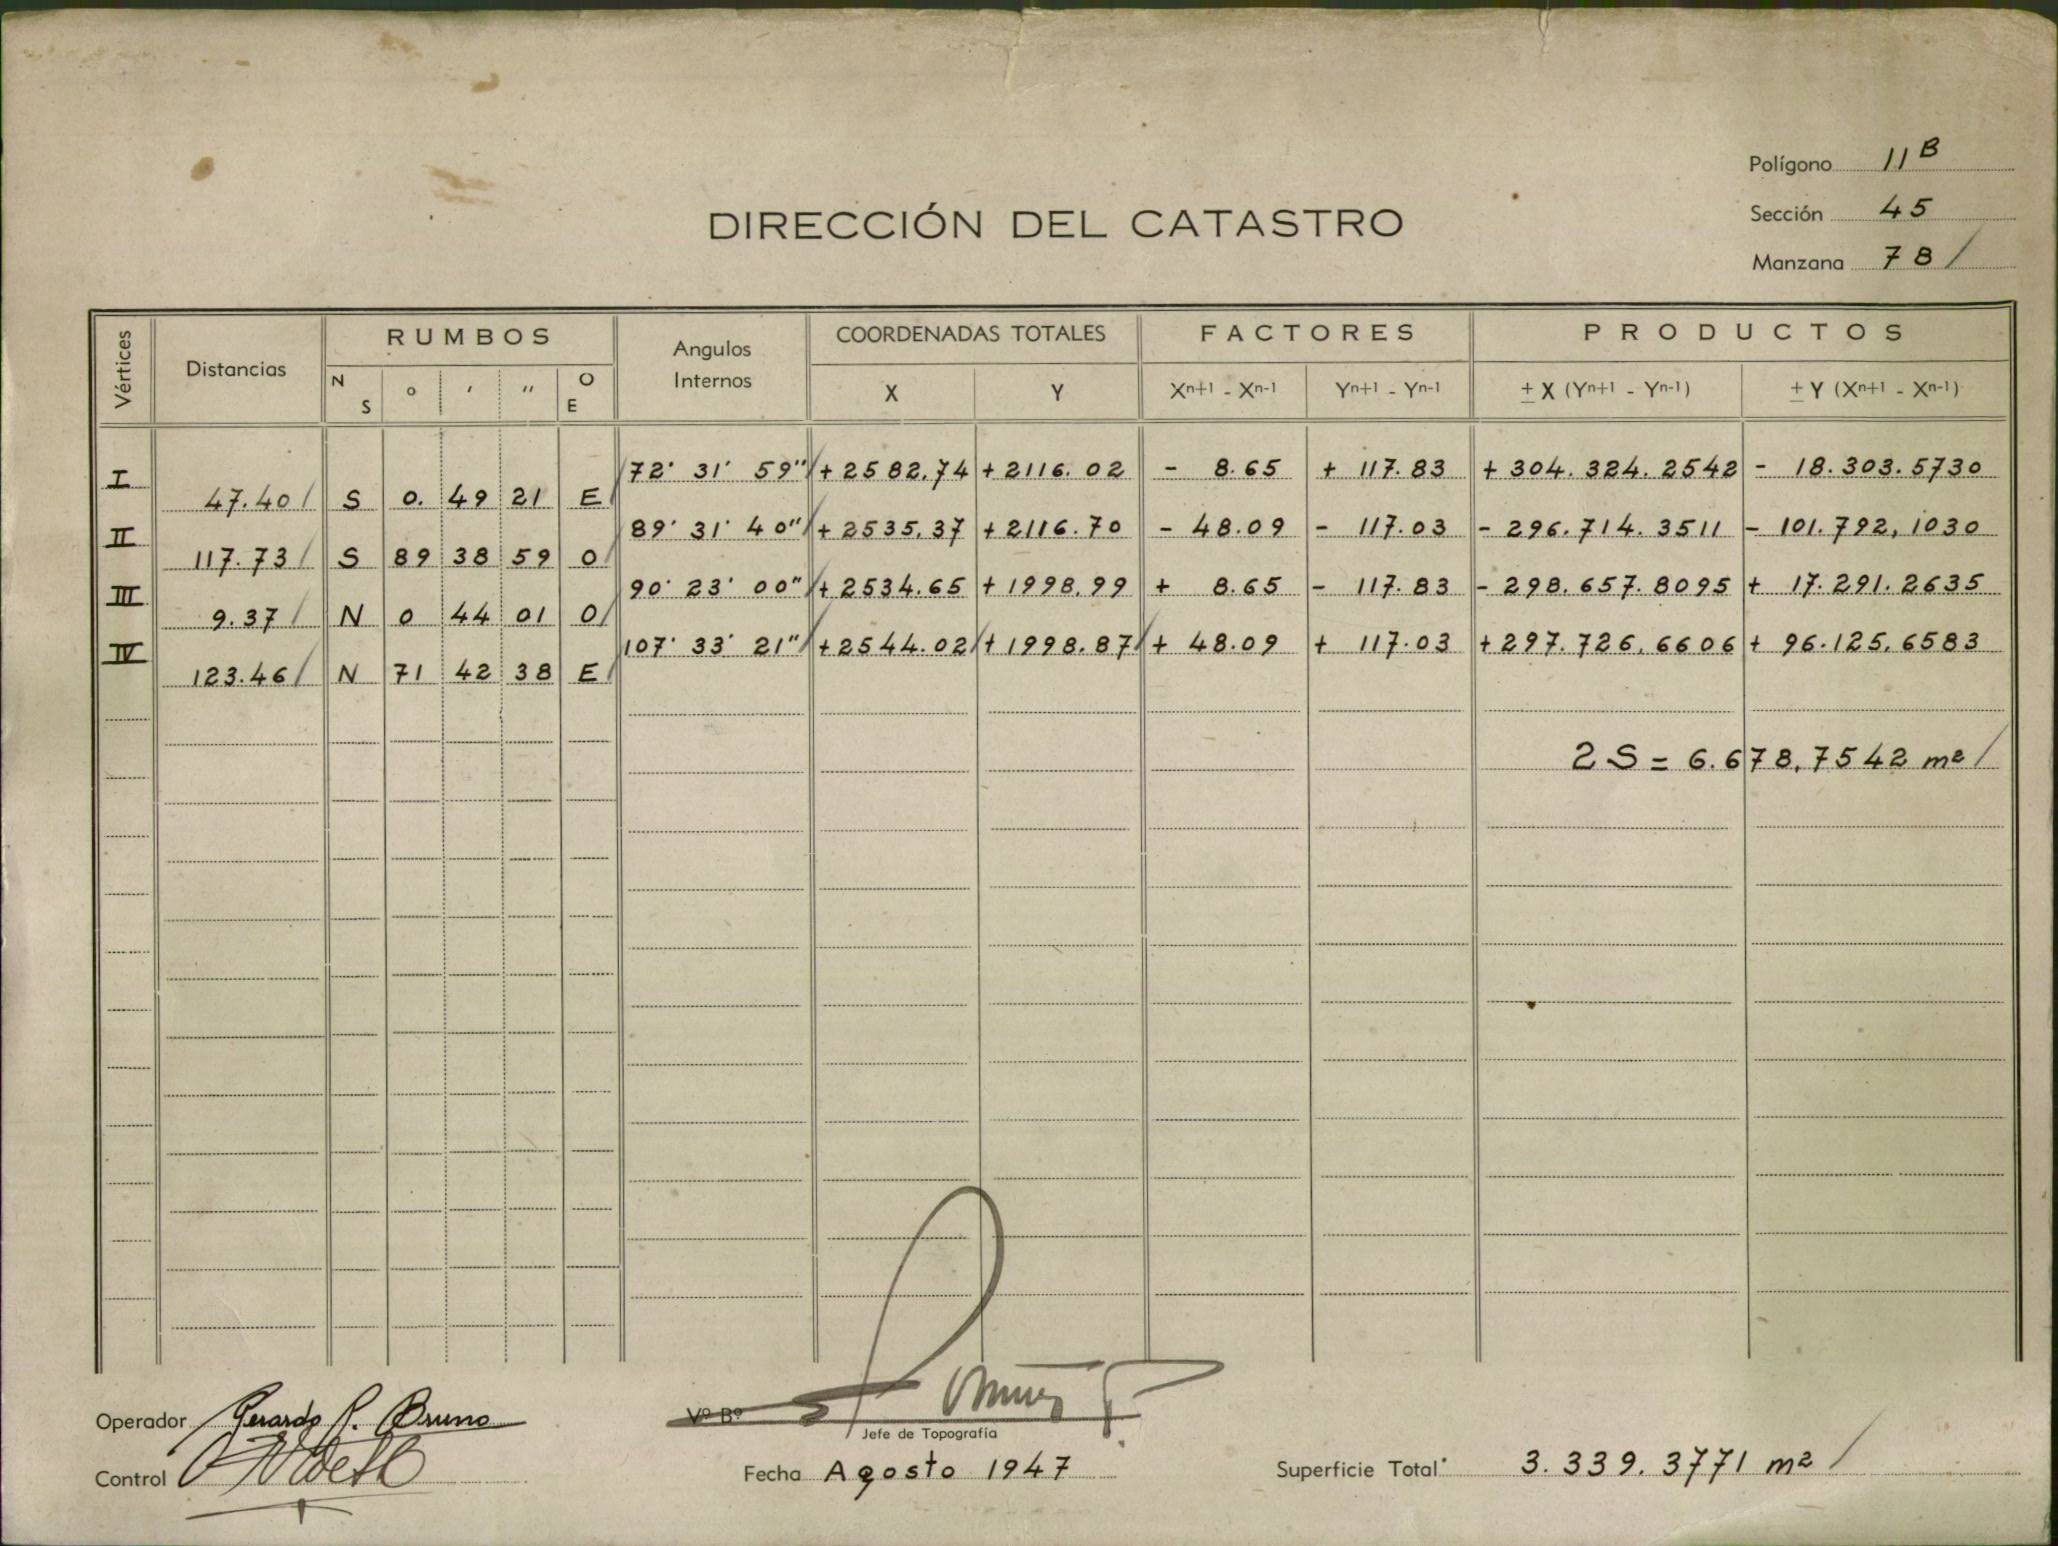 Polígono 11B
Sección 45
Manzana 78
DIRECCIÓN DEL CATASTRO
Vértices Distancias RUMBOS Angulos Internos COORDENADAS TOTALES FACTORES PRODUCTOS
N S ° ′ ″ O E X Y Xn+1 - Xn-1 Yn+1 - Yn-1 ± X (Yn+1 - Yn-1) ± Y (Xn+1 - Xn-1)
I 72° 31' 59" + 2582.74 + 2116.02 - 8.65 + 117.83 + 304.324.2542 - 18.303.5730
47.40 S 0. 49 21 E
II 89° 31' 40" + 2535.37 + 2116.70 - 48.09 - 117.03 - 296.714.3511 - 101.792,1030
117.73 S 89 38 59 O
III 90° 23' 00" + 2534.65 + 1998.99 + 8.65 - 117.83 - 298.657.8095 + 17.291.2635
9.37 N 0 44 01 O
IV 107° 33' 21" + 2544.02 + 1998.87 + 48.09 + 117.03 + 297.726,6606 + 96.125,6583
123.46 N 71 42 38 E
2 S = 6.678,7542 m²
Operador Gerardo P. Bruno
Vº Bº
Jefe de Topografía
Control
Fecha Agosto 1947
Superficie Total 3.339.3771 m²